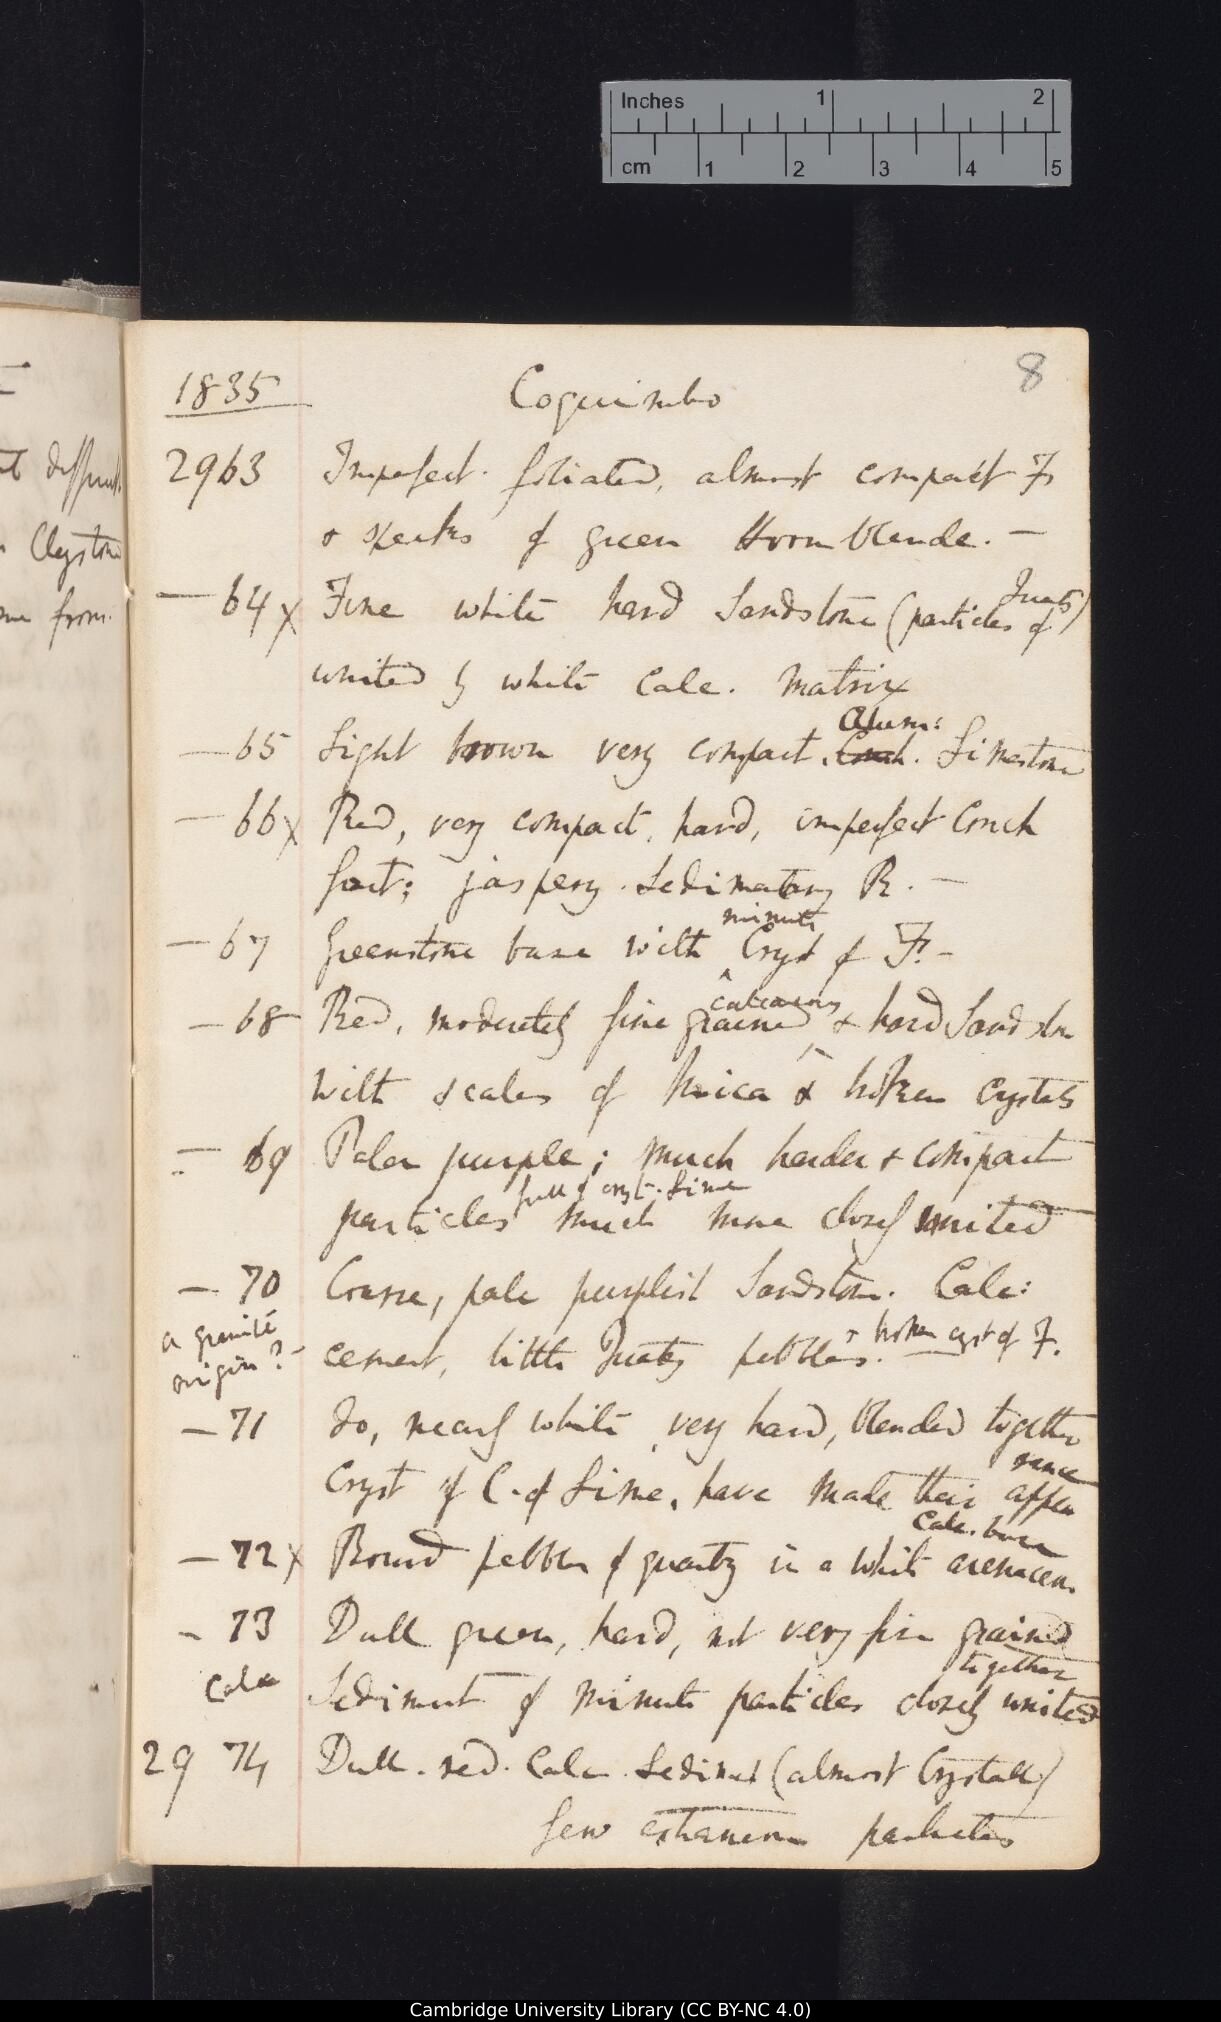 Inches 1 2
cm 1 2 3 4 5
8
1835 Coquimbo
2963 Imperfect. foliated, almost compact F
& specks of green Hornblende. —
— 64 x Fine white hard Sandstone (particles of Quartz)
united by white Calc. matrix
— 65 Light brown very compact. Conch. Alum: Limestone
— 66 x Red, very compact, hard, imperfect Conch
fract; jaspery. Sedimentary R. —
— 67 Greenstone base with minute Cryst of F. —
— 68 Red, moderately fine grained calcareous & hard Sandstone
with scales of Mica & broken crystals
— 69 Paler purple; much harder & compact
particles full of cryst. Lime much more closely united
— 70 Coarse, pale purplish Sandstone. Calc:
cement, little Quartz pebbles. & broken cryst of F.
a granite
origin?
— 71 do, nearly white, very hard, blended together
Cryst of C. of Lime, have made their appearance
— 72 x Round pebbles of quartz in a white arenaceous Calc. base
— 73 Dull green, hard, not very fine grained
Calc Sediment of minute particles closely united together
29 74 Dull. red. Calc. Sediment (almost Crystall)
few extraneous particles
Cambridge University Library (CC BY-NC 4.0)